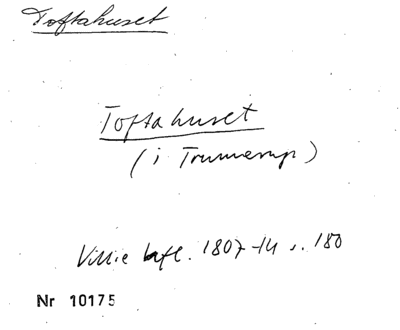 Toftahuset
Toftahuset
(i Trunnerup)
Villie hfl. 1807-14 s. 180
Nr 10175